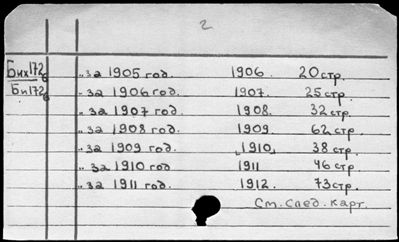 2
Бих172б „за 1905 год. 1906. 20стр.
Би172б „за 1906 год. 1907. 25стр.
„за 1907 год 1908. 32стр.
„за 1908 год 1909. 62стр.
„за 1909 год „1910„ 38 стр.
„за 1910 год 1911 46 стр.
„за 1911 год. 1912. 73стр.
См. след. карт.